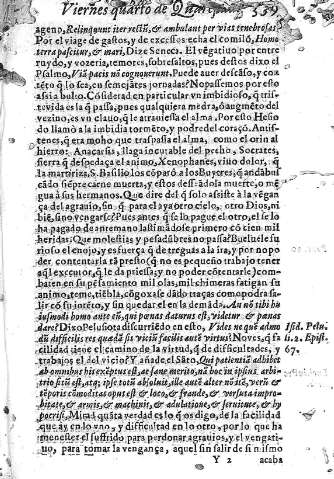 Viernes quarto de Quaresma. 339
ageno, Relinquunt iter rectũ, & ambulant per vias tenebrosas.
Por el viage de gastos, y de excessos echa el comilõ, Homo
terra pascitur, & mari, Dize Seneca. El vẽgatiuo por entre
ruydo, y vozeria, temores, sobresaltos, pues destos dixo el
Psalmo, Viã pacis nõ cognouerunt. Puede auer descãso, y cox
tẽto q̃ lo sea, en semejãtes jornadas? No passemos por esto
assi a bulto. Cõsiderad en particular vn imbidioso, q̃ tris-
te vida es la q̃ passa, pues qualquiera medra, ò augmẽto del
vezino, es vn clauo, q̃ le atrauiessa el alma. Por esto Hesio
do llamò a la imbidia tormẽto, y podre del coraçõ. Antis-
tenes, q̃ era moho que traspassa el alma, como el orin al
hierro: Anacarsis, llaga incurable del pecho, Socrates,
sierra q̃ despedaça el animo, Xenophanes, viuo dolor, q̃
la martiriza, S. Basilio, los cõparò a los Buyeres, q̃ andã bus
cãdo siẽpre carne muerta, y estos dessẽãdola muerte, o mẽ
gua a sus hermanos. Que dire del q̃ solo assiste a la vẽgan
ça del agrauio, sin q̃ para el aya otro cielo, otro Dios, ni
biẽ, sino vengarse? Pues antes q̃ se lo pague el otro, el se lo
ha pagado de antemano lastimãdose primero cõ tien mil
heridas: Que molestias y pesadũbres no passa? Buelue le su
rioso el enojo, y es fuerça q̃ de treguas a la ira, y por no po
der contentarla tã presto (q̃ no es pequeño trabajo tener
aq̃l executor, q̃ le da priessa; y no poder cõtentarle) com-
baten en su pẽsamiento mil olas, mil chimeras fatigan su
animo, teme, tiẽbla, cõgoxase dãdo traças como podra sa-
lir cõ su intẽto, y sin quedar el en la demãda. An nõ tibi hu
iusmodi homo ante eũ, qui pœnas daturus est, videtur & pœnas
dare? Dixo Pelusiota discurriẽdo en esto, Vides ne quã admo
dũ difficilis res quadã sit viciũ facilis autẽ virtus? No ves, q̃ fa
cilidad tiene el camino de la virtud, q̃ de dificultades, y
trabajos el del vicio? Y añade el Sãto, Qui patientiã adhibet
ab omnibus his exẽptus est, ac sane meritò, nã hoc in ipsius arbi-
trio sitũ est, atq; ipse totũ absoluit, ille autẽ alter nõ itẽ, verũ &
tẽporis cõmoditas opus est & loco, & fraude, & versuta impro-
bitate, & armis, & machinis, & adulatione, & seruitute, & hy
pocrisi. Mirad quãta verdad es lo q̃ os digo, de la facilidad
que ay en lo vno, y dificultad en lo otro, por lo que ha
menester el sufrido para perdonar agrauios, y el vengati-
uo, para tomar la vengança, aquel sin salir de si mismo
Isid. Pelu.
li. 2. Epist.
67.
Y 2 acaba